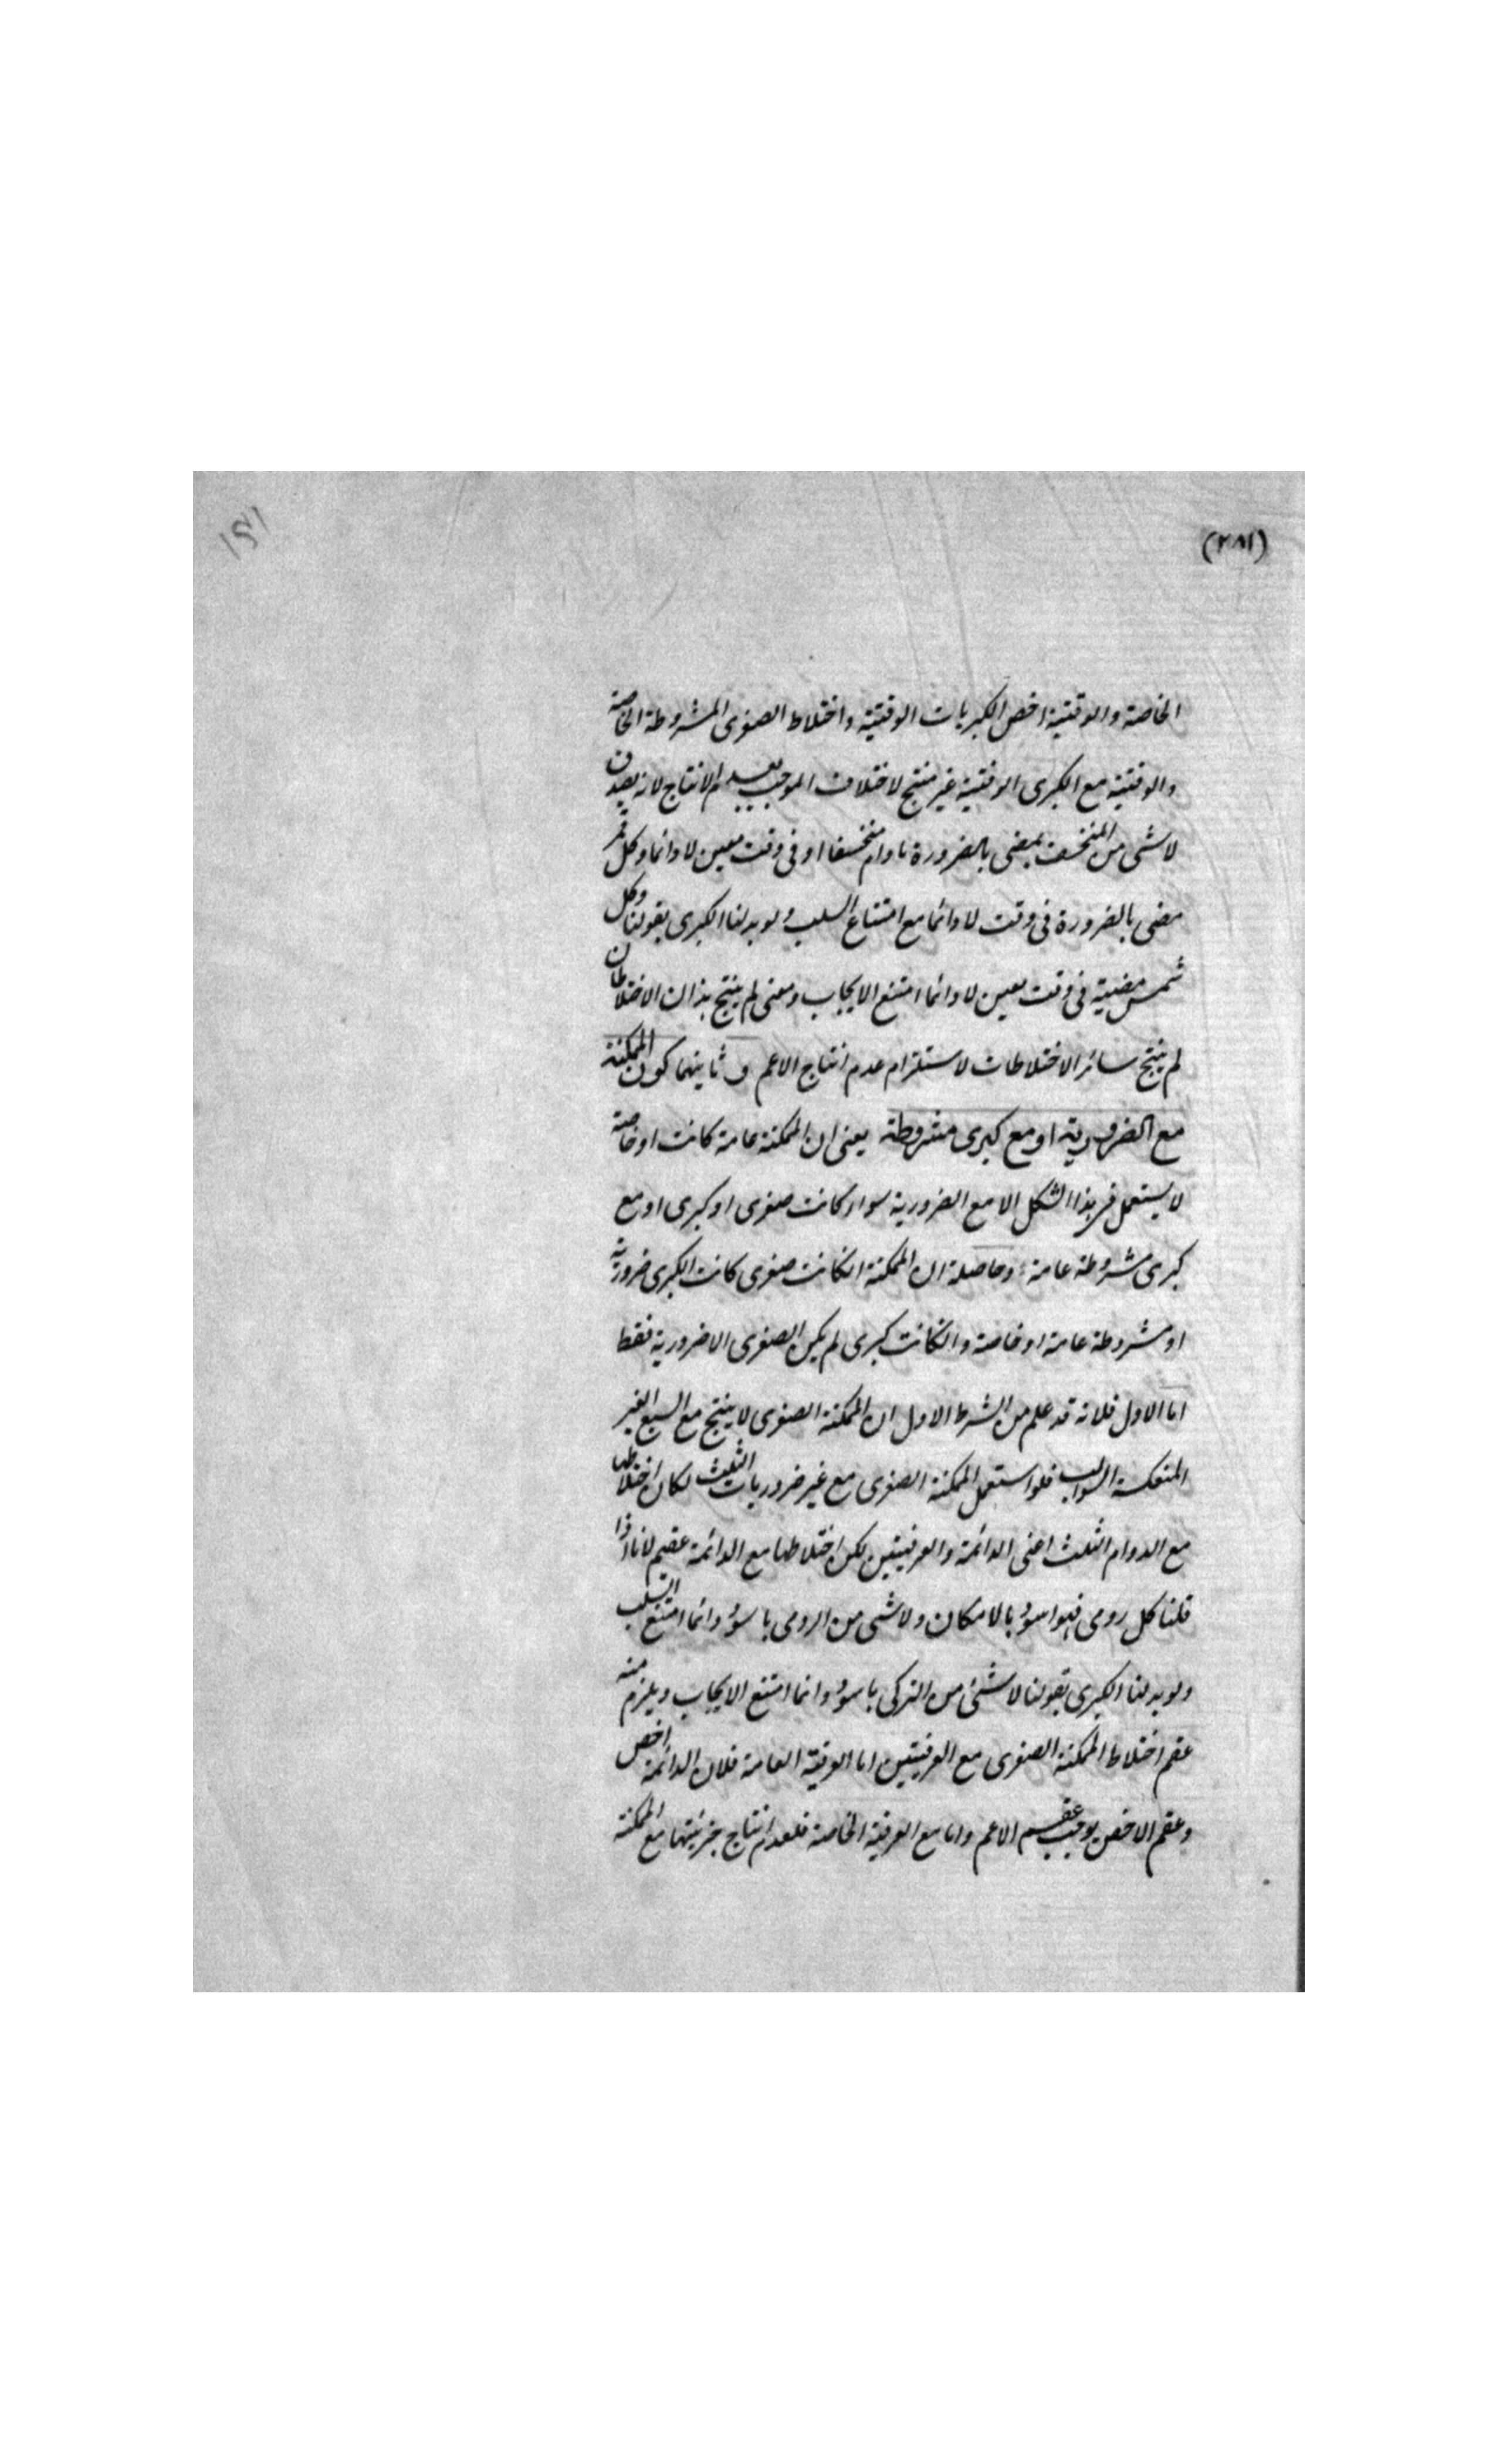 (٢٨١)
١٤١
الخاصة والوقتية اخص الكبريات الوقتية واختلاط الصغرى المشروطة الخاصة
والوقتية مع الكبرى الوقتية غير منتج لاختلاف الموجب لعدم الانتاج لانه يصدق
لا شى من المنخسف بمضى بالضرورة مادام منخسفا او فى وقت معين لا دائما وكل قمر
مضى بالضرورة فى وقت لا دائما مع امتناع السلب ولو بدلنا الكبرى بقولنا وكل
شمس مضيئة فى وقت معين لا دائما امتنع الايجاب ومعنى لم ينتج هذان الاختلاطان
لم ينتج سائر الاختلاطات لاستلزام عدم انتاج الاعم وثانيهما كون الممكنة
مع الضرورية او مع كبرى مشروطة يعنى ان الممكنة عامة كانت او خاصة
لا يستعمل فى هذا الشكل الا مع الضرورية سواء كانت صغرى او كبرى او مع
كبرى مشروطة عامة وحاصله ان الممكنة انكانت صغرى كانت الكبرى ضرورية
او مشروطة عامة او خاصة وانكانت كبرى لم يكن الصغرى الا ضرورية فقط
اما الاول فلانه قد علم من الشرط الاول ان الممكنة الصغرى لا ينتج مع السبع الغير
المنعكسة السوالب فلو استعمل الممكنة الصغرى مع غير ضروريات الثلث لكان اختلاطها
مع الدوام الثلث اعنى الدائمة والعرفيتين لكن اختلاطها مع الدائمة عقيم لانا اذا
قلنا كل رومى فهو اسود بالامكان ولا شى من الرومى باسود دائما امتنع السلب
ولو بدلنا الكبرى بقولنا لا شئ من التركى باسود دائما امتنع الايجاب ويلزم منه
عقم اختلاط الممكنة الصغرى مع العرفيتين اما العرفية العامة فلان الدائمة اخص
وعقم الاخص يوجب عقم الاعم واما مع العرفية الخاصة فلعدم انتاج جزئيتها مع الممكنة